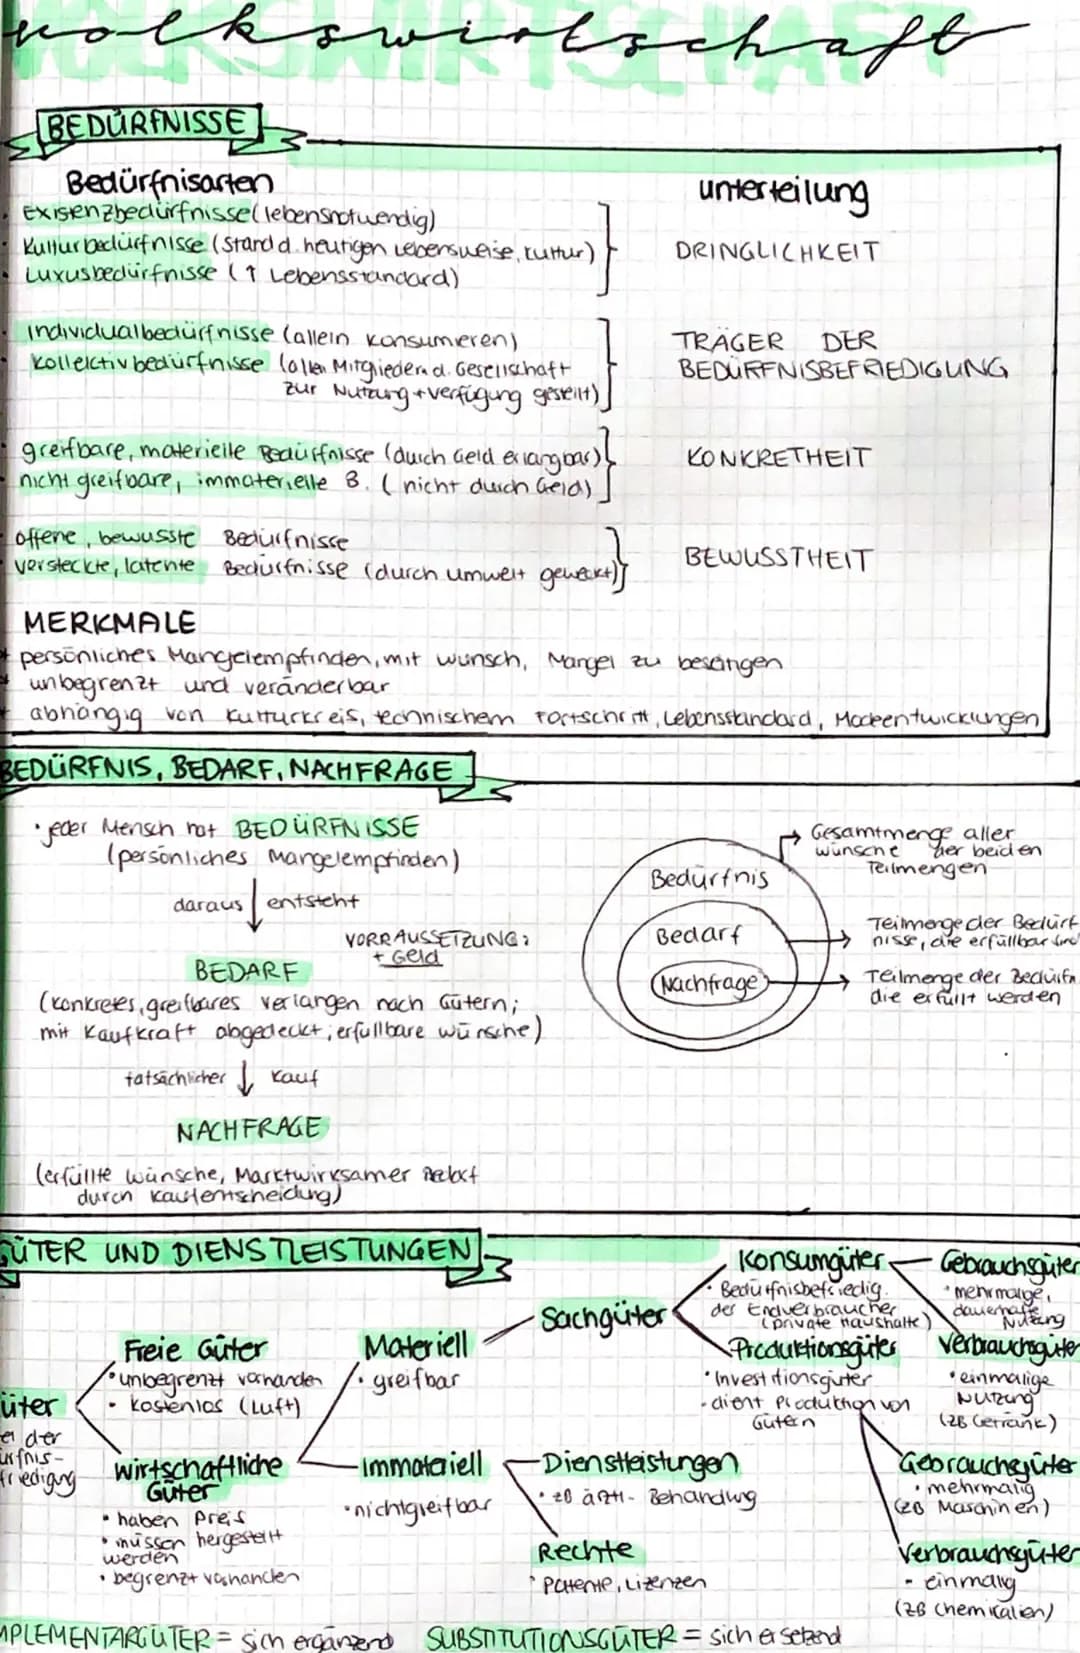 volkswirtschaft
VOLKSWIRTSCHAFT
BEDÜRFNISSE
Bedürfnisarten
unterteilung
Existenzbedürfnisse (lebensnotwendig)
Kulturbedürfnisse (Stand d. heutigen Lebensweise, Kultur)
Luxusbedürfnisse (↑ Lebensstandard)
DRINGLICHKEIT
Individualbedürfnisse (allein konsumieren)
Kollektivbedürfnisse (allen Mitgliedern d. Gesellschaft
zur Nutzung + Verfügung gestellt)
TRÄGER DER
BEDÜRFNISBEFRIEDIGUNG
greifbare, materielle Bedürfnisse (durch Geld erlangbar)
nicht greifbare, immaterielle B. (nicht durch Geld)
KONKRETHEIT
offene, bewusste Bedürfnisse
versteckte, latente Bedürfnisse (durch Umwelt geweckt)
BEWUSSTHEIT
MERKMALE
persönliches Mangelempfinden, mit Wunsch, Mangel zu beseitigen
unbegrenzt und veränderbar
abhängig von Kulturkreis, technischem Fortschritt, Lebensstandard, Modeentwicklungen
BEDÜRFNIS, BEDARF, NACHFRAGE
· jeder Mensch hat BEDÜRFNISSE
(persönliches Mangelempfinden)
daraus ↓ entsteht
VORRAUSSETZUNG:
+ Geld
BEDARF
(konkretes, greifbares Verlangen nach Gütern;
mit Kaufkraft abgedeckt; erfüllbare Wünsche)
tatsächlicher ↓ Kauf
NACHFRAGE
(erfüllte Wünsche, Marktwirksamer Bedarf
durch Kaufentscheidung)
Bedürfnis
Bedarf
Nachfrage
Gesamtmenge aller
Wünsche der beiden
Teilmengen
Teilmenge der Bedürf
nisse, die erfüllbar sind
Teilmenge der Bedürfn
die erfüllt werden
GÜTER UND DIENSTLEISTUNGEN
üter
der
ürfnis-
friedigung
Freie Güter
· unbegrenzt vorhanden
· kostenlos (Luft)
wirtschaftliche
Güter
· haben Preis
· müssen hergestellt
werden
· begrenzt vorhanden
Materiell
· greifbar
Immateriell
· nicht greifbar
Sachgüter
Dienstleistungen
· zB ärztl. Behandlung
Rechte
· Patente, Lizenzen
Konsumgüter
· Bedürfnisbefriedig.
der Endverbraucher
(private Haushalte)
Produktionsgüter
· Investitionsgüter
- dient Produktion von
Gütern
Gebrauchsgüter
· mehrmalige,
dauerhafte
Nutzung
Verbrauchsgüter
· einmalige
Nutzung
(zB Getränk)
Gebrauchsgüter
· mehrmalig
(zB Maschinen)
Verbrauchsgüter
- einmalig
(zB Chemikalien)
MPLEMENTÄRGÜTER = sich ergänzend SUBSTITUTIONSGÜTER = sich ersetzend